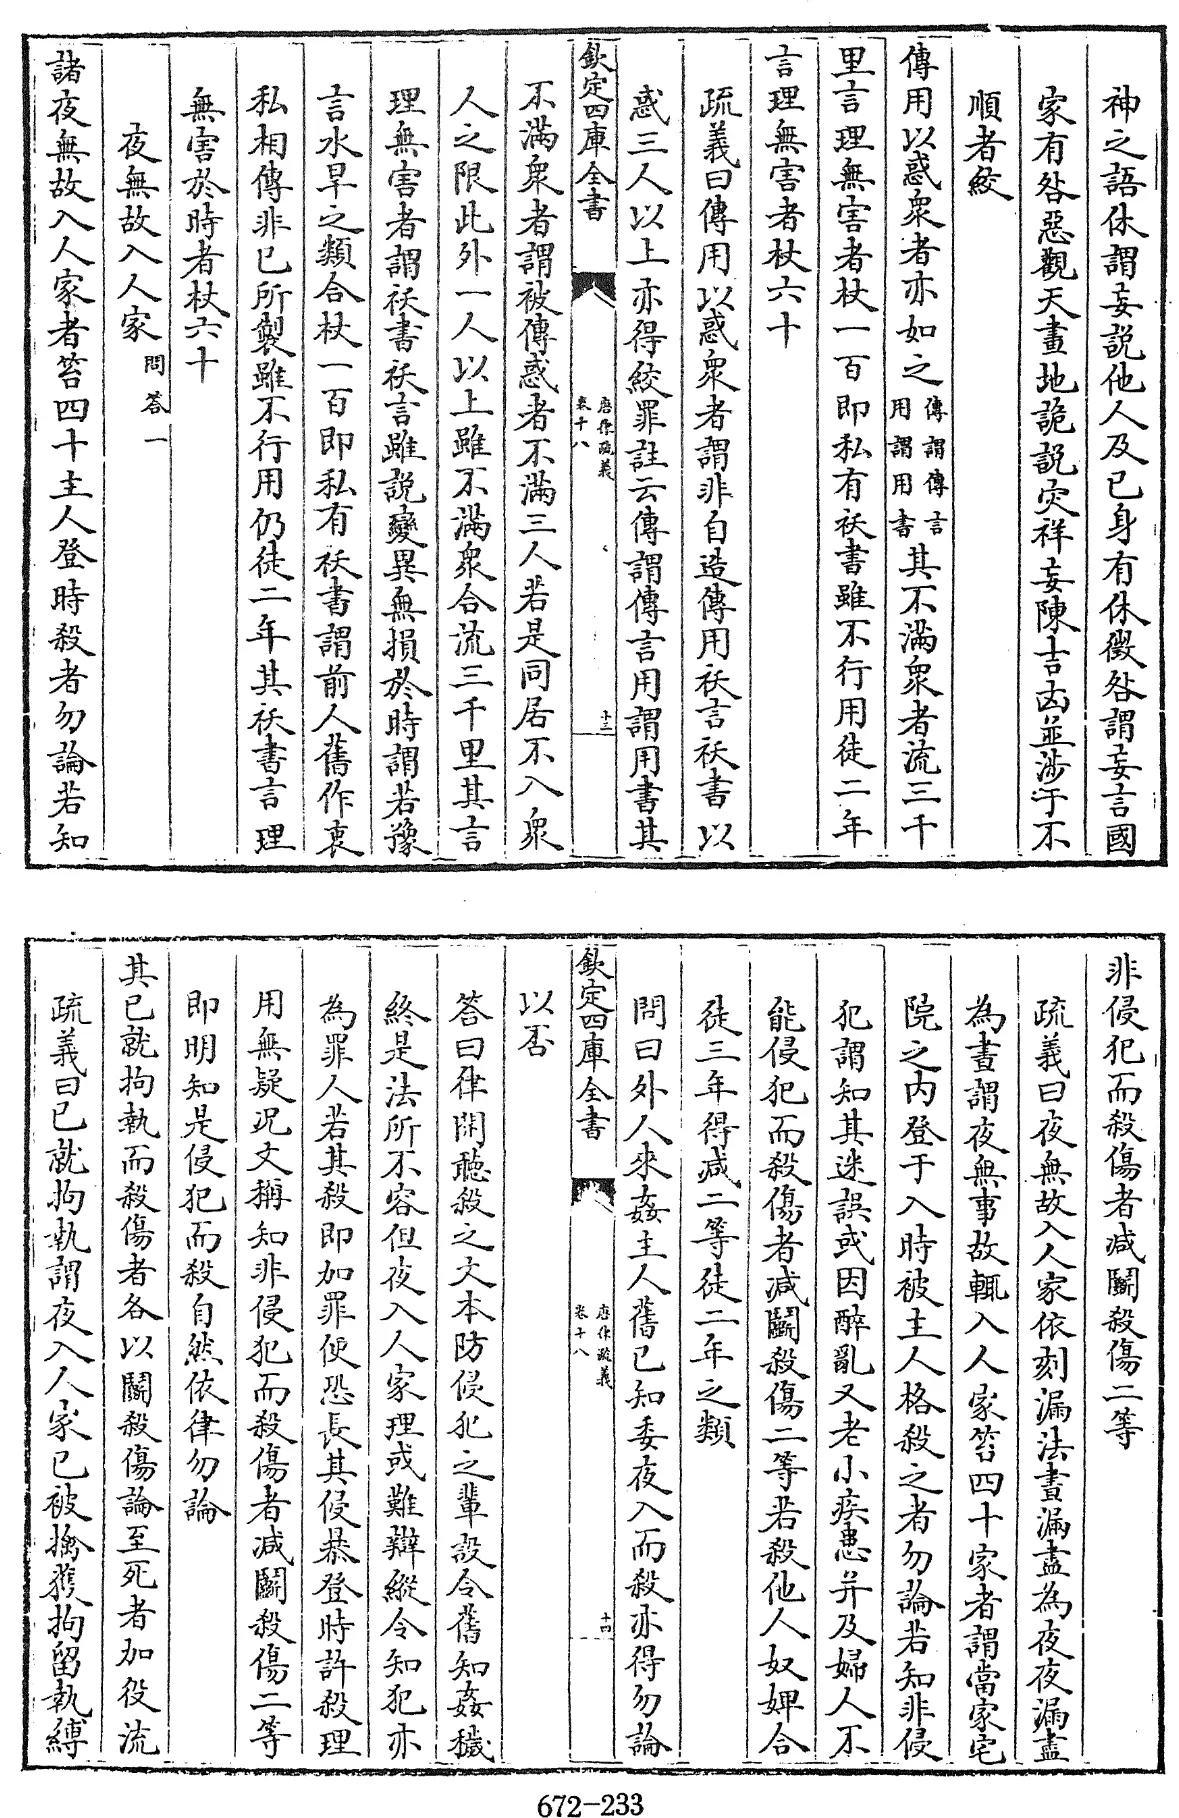 神之語休謂妄説他人及已身有休徵咎謂妄言國
家有咎惡觀天畫地詭説灾祥妄陳吉凶並涉于不
順者絞
傳用以惑衆者亦如之傳謂傳言用謂用書其不滿衆者流三千
里言理無害者杖一百即私有祅書雖不行用徒二年
言理無害者杖六十
疏義曰傳用以惑衆者謂非自造傳用祅言祅書以
惑三人以上亦得絞罪註云傳謂傳言用謂用書其
欽定四庫全書 唐律疏義卷十八 十三
不滿衆者謂被傳惑者不滿三人若是同居不入衆
人之限此外一人以上雖不滿衆合流三千里其言
理無害者謂祅書祅言雖説變異無損於時謂若豫
言水旱之類合杖一百即私有祅書謂前人舊作衷
私相傳非已所製雖不行用仍徒二年其祅書言理
無害於時者杖六十
夜無故入人家問答一
諸夜無故入人家者笞四十主人登時殺者勿論若知
非侵犯而殺傷者减鬭殺傷二等
疏義曰夜無故入人家依刻漏法晝漏盡為夜夜漏盡
為晝謂夜無事故輙入人家笞四十家者謂當家宅
院之内登于入時被主人格殺之者勿論若知非侵
犯謂知其迷誤或因醉亂又老小疾患并及婦人不
能侵犯而殺傷者减鬭殺傷二等若殺他人奴婢合
徒三年得减二等徒二年之類
問曰外人來姦主人舊已知委夜入而殺亦得勿論
以否
欽定四庫全書 唐律疏義卷十八 十四
答曰律開聽殺之文本防侵犯之輩設令舊知姦穢
終是法所不容但夜入人家理或難辯縱令知犯亦
為罪人若其殺即加罪便恐長其侵暴登時許殺理
用無疑况文稱知非侵犯而殺傷者减鬭殺傷二等
即明知是侵犯而殺自然依律勿論
其已就拘執而殺傷者各以鬭殺傷論至死者加役流
疏義曰已就拘執謂夜入人家已被擒獲拘留執縛
672-233